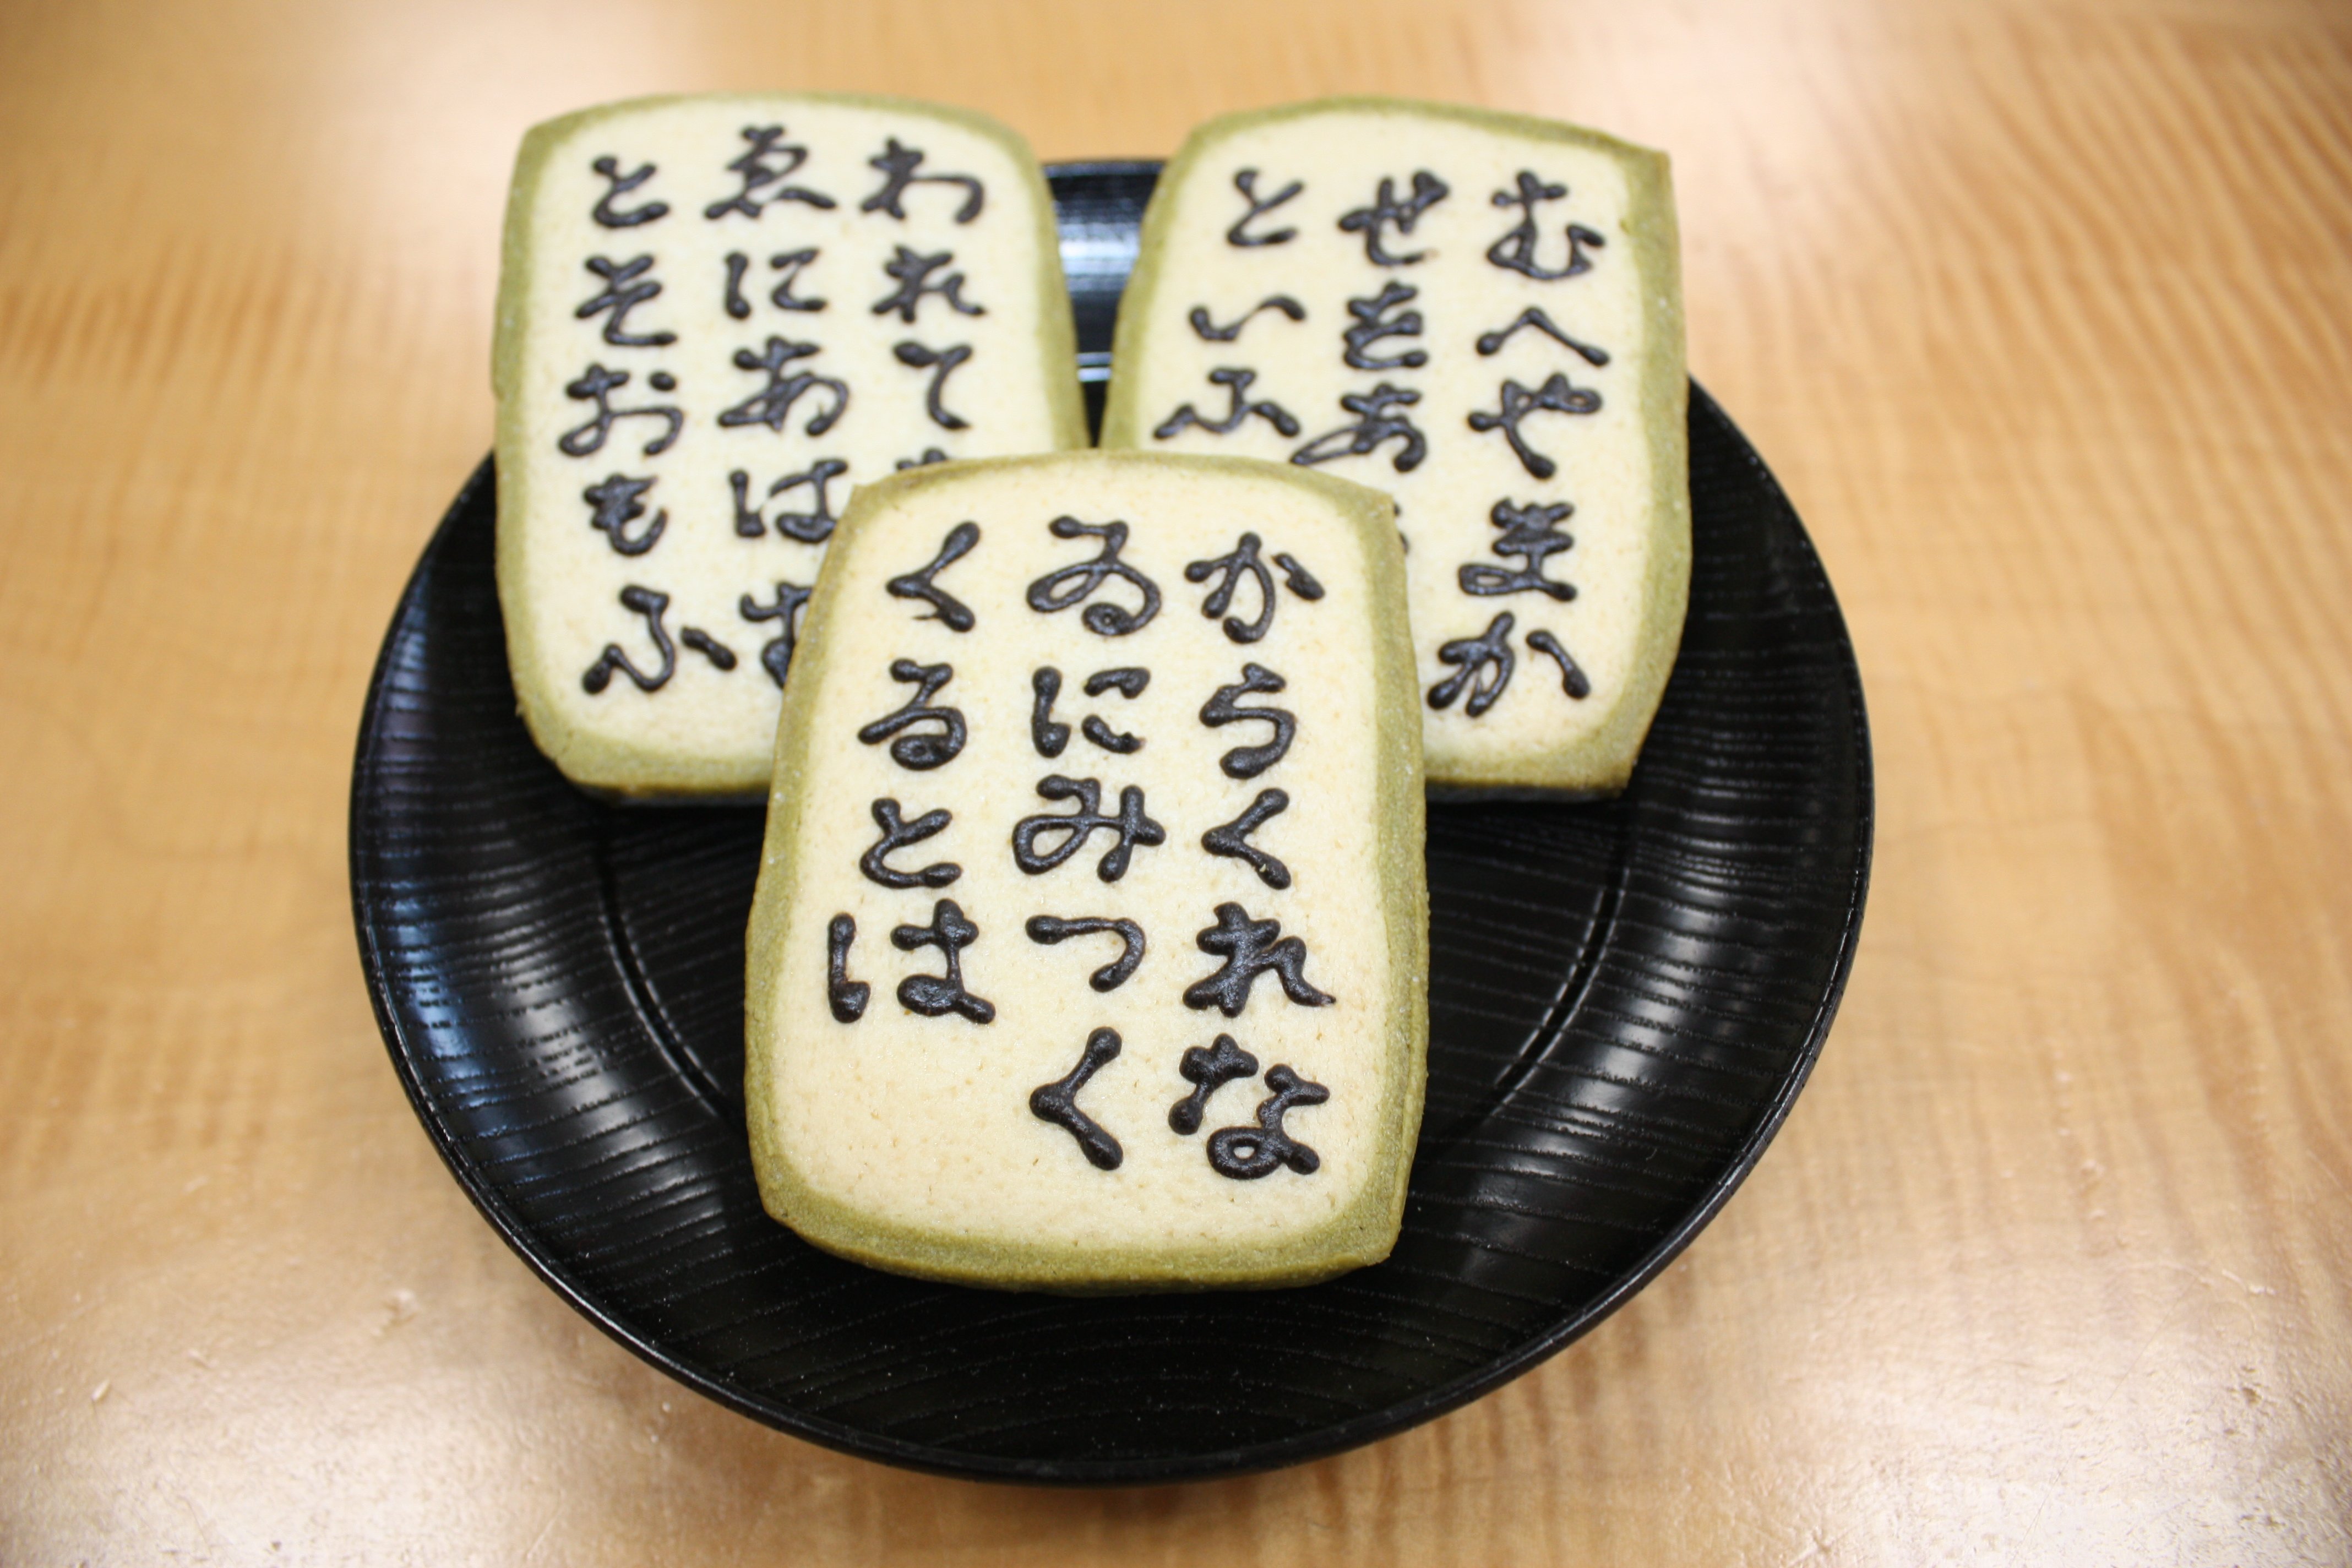 からくれな
ゐにみつく
くるとは
むへやまか
せをあ
といふ
われて
ゑにあはむ
とそおもふ